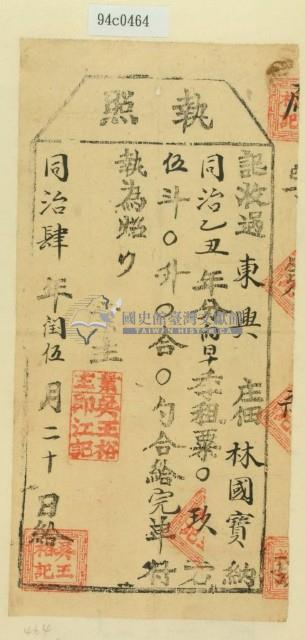 94c0464
執照
記收過東興庄佃林國寶納
同治乙丑年分前早季租粟○玖石
伍斗○升○合○勺合給完單符
執為炤
業主
業主吳玉裕印江記
同治肆年閏伍月二十日給
國史館臺灣文獻館
TAIWAN HISTORICA
464